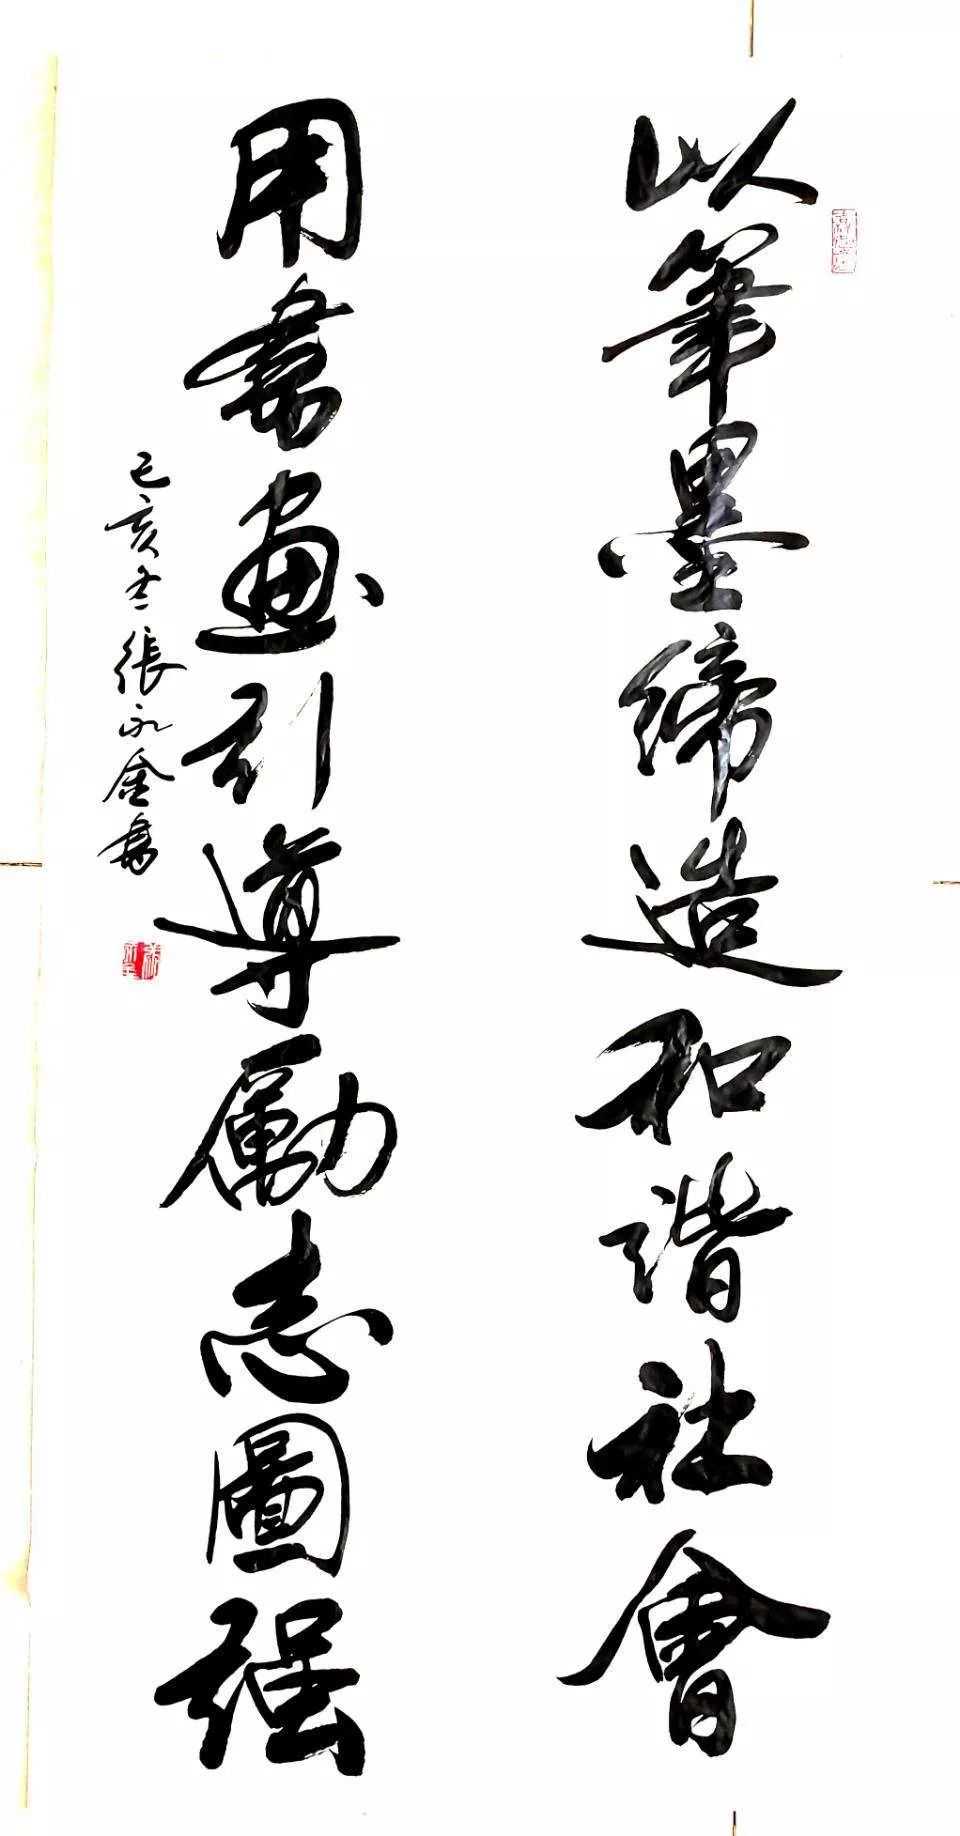 以筆墨締造和谐社會
用書畫引導勵志圖强
己亥冬張永金書